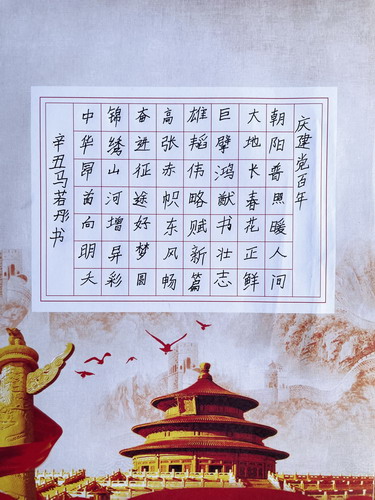 庆建党百年
朝阳普照暖人间
大地长春花正鲜
巨擘鸿猷书壮志
雄韬伟略赋新篇
高张赤帜东风畅
奋进征途好梦圆
锦绣山河增异彩
中华昂首向明天
辛丑马若彤书